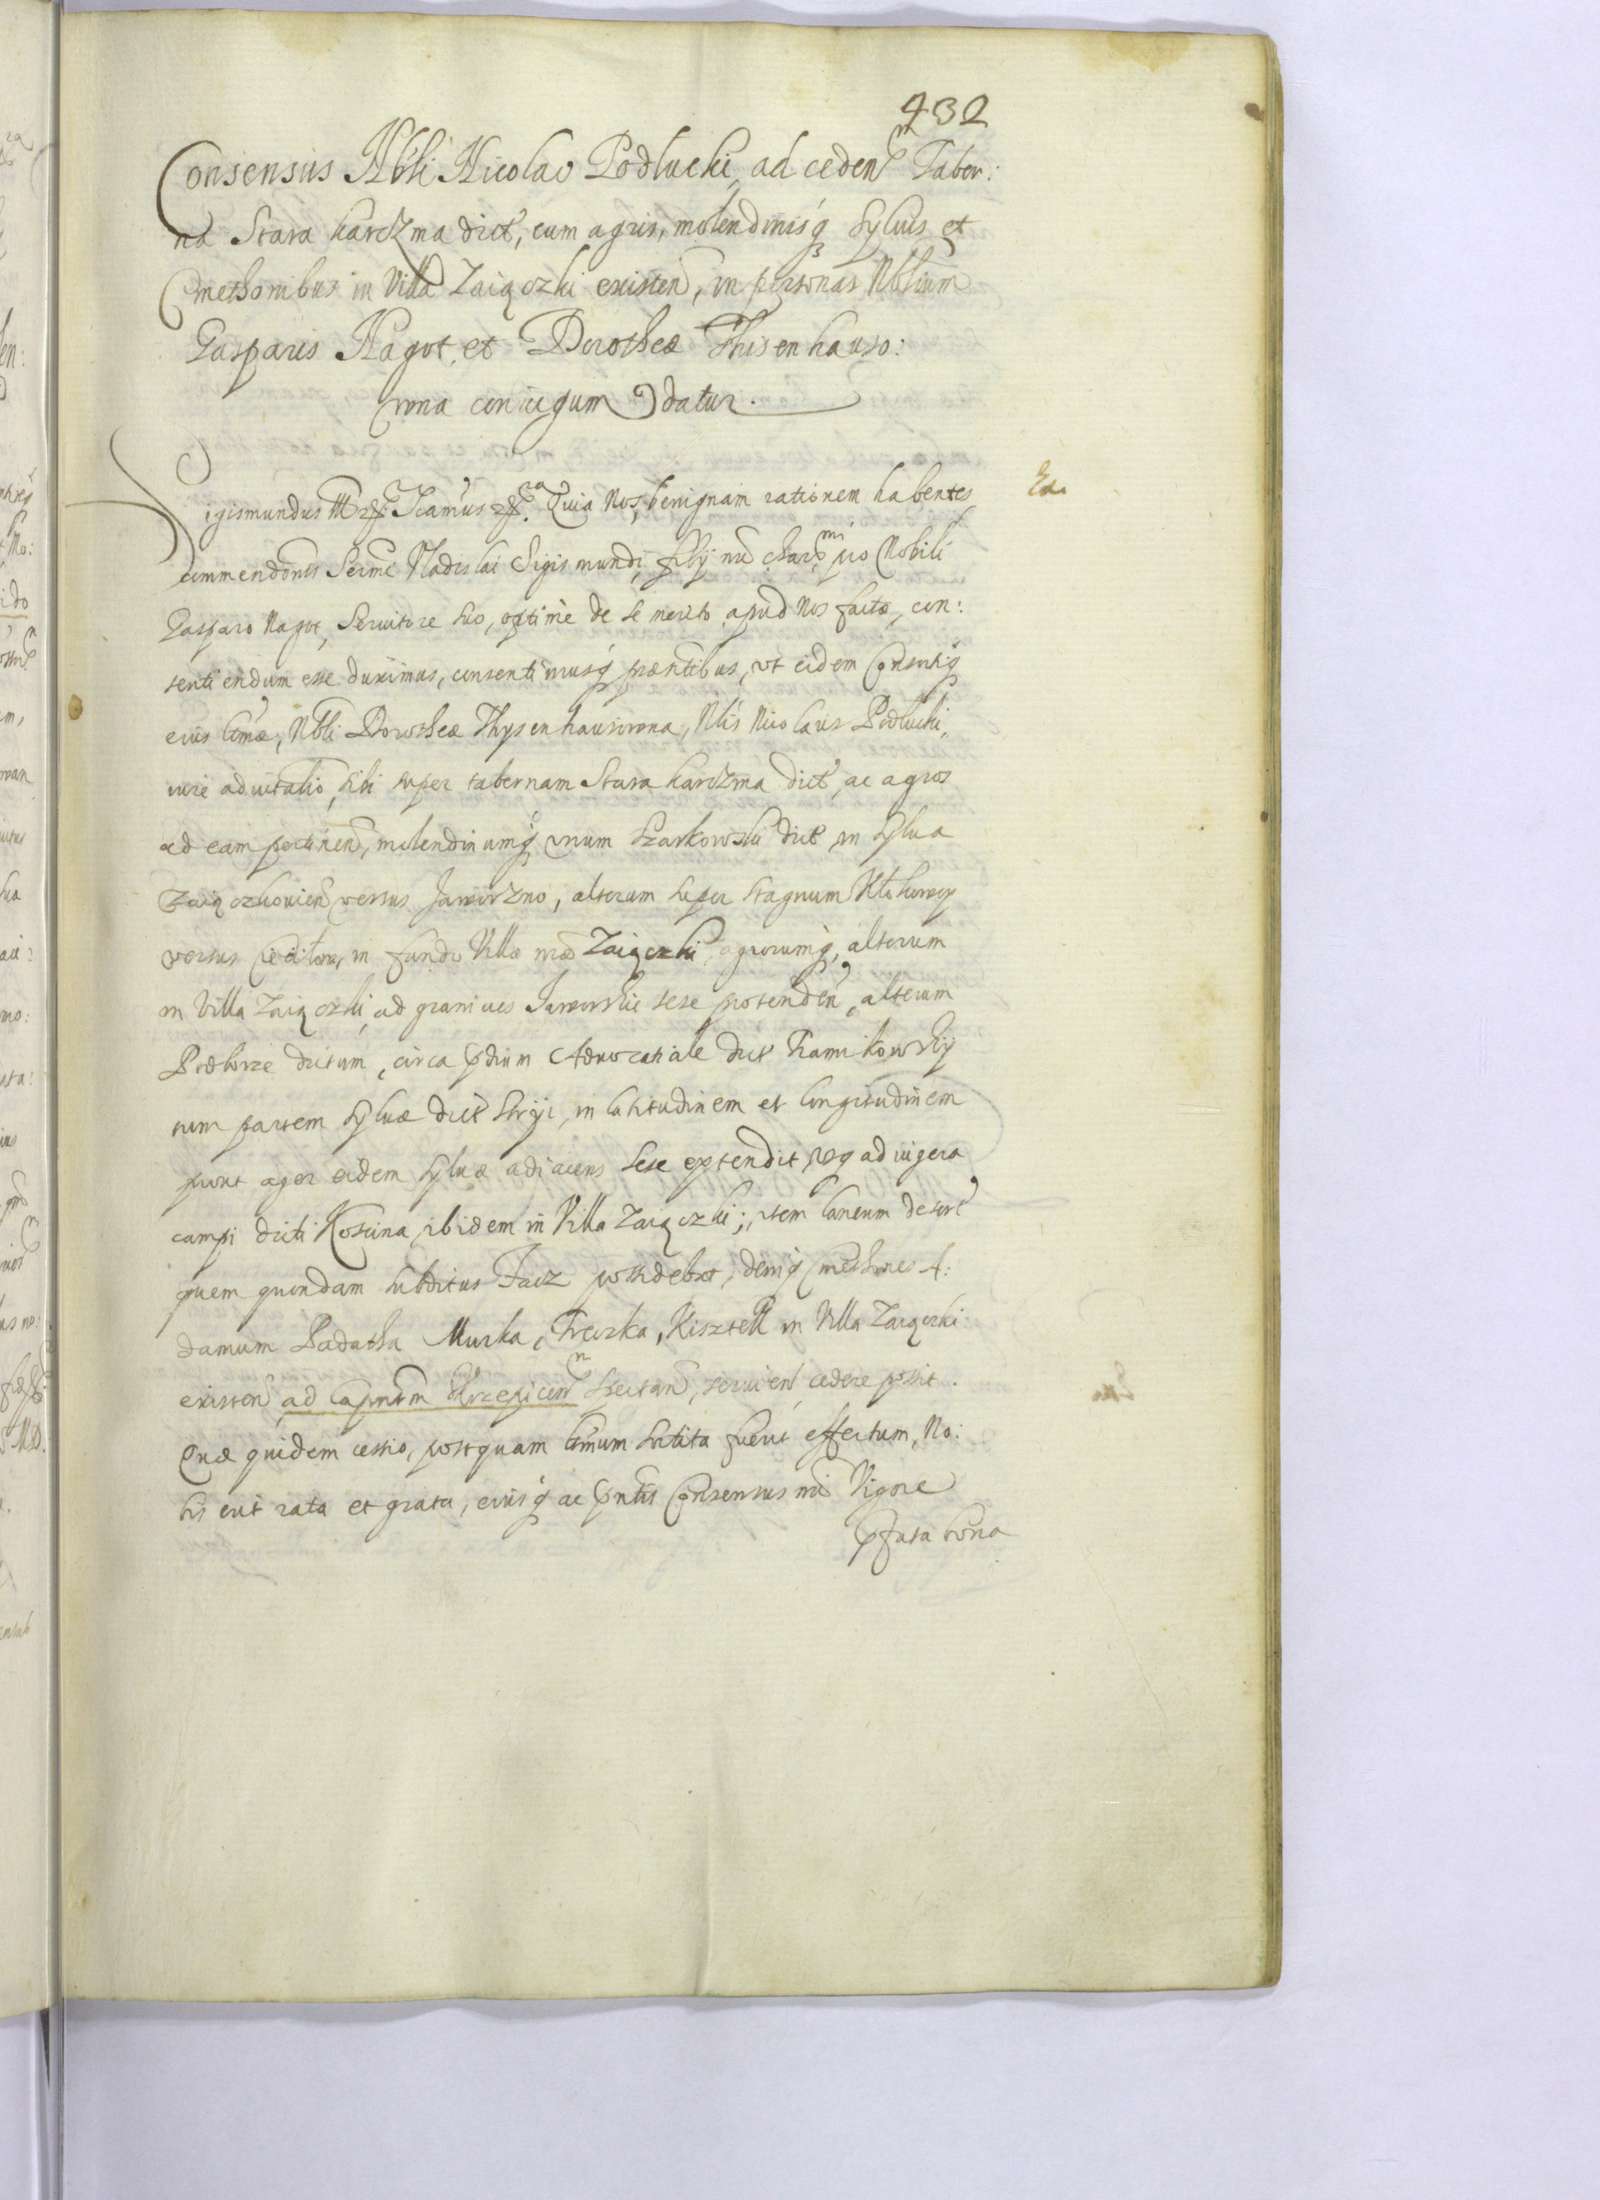 432
Consensus Nbli Nicolao Podlucki, ad ceden Taber:
na Stara karczma dict, cum agris, molendinisq Syluis et
Cmethonibus in Villa Zaiączki existen, in personas Nblium
Gasparis Nagot, et Dorotheæ Thisenhauzo:
wna coniugum datur.
Sigismundus III etc. Quia Nos, benignam rationem habentes
commendonis Sermi Vladislai Sigismundi, filij nri charmi pro Nobili
Gasparo Nagot, Seruitore suo, optime de se merito apud Nos factæ, con:
sentiendum esse duximus, consentimusq præntibus, vt eidem Consortiq
eius ltmæ, Nbli Dorotheæ Thysenhausowna, Nblis Nicolaus Podlucki,
iure aduitalio, sibi super tabernam Stara karczma dict, ac agros
ad eam pertinen, molendinumq vnum Szarkowski dict in sylua
Zaiączkouien versus Jaworzno, alterum super stagnum
versus in fundo Villæ nræ Zaiączki, agrorumq, alterum
in Villa Zaiączki, ad granicies Jaworskie sese protenden, alterum
Podborze dictum, circa prdium Aduocatiale dict
tum partem syluæ dict in latitudinem et longitudinem
prout ager eidem syluæ adiacens sese extendit, vsq ad iugera
campi dicti ibidem in Villa Zaiączki; item laneum desert
quem quondam subditus possidebat, deniq Cmethones A:
damum Murka, in Villa Zaiączki
existen ad Capneum Krzepicen spectan, seruien cedere possit.
Quæ quidem cessio, postquam ltmum sortita fuerit effectum, No:
bis erit rata et grata, eiusq ac pntis Consensus nri Vigore
prfata bona